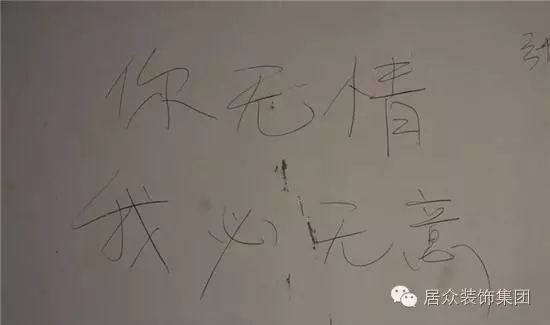 你无情
我必无意
居众装饰集团